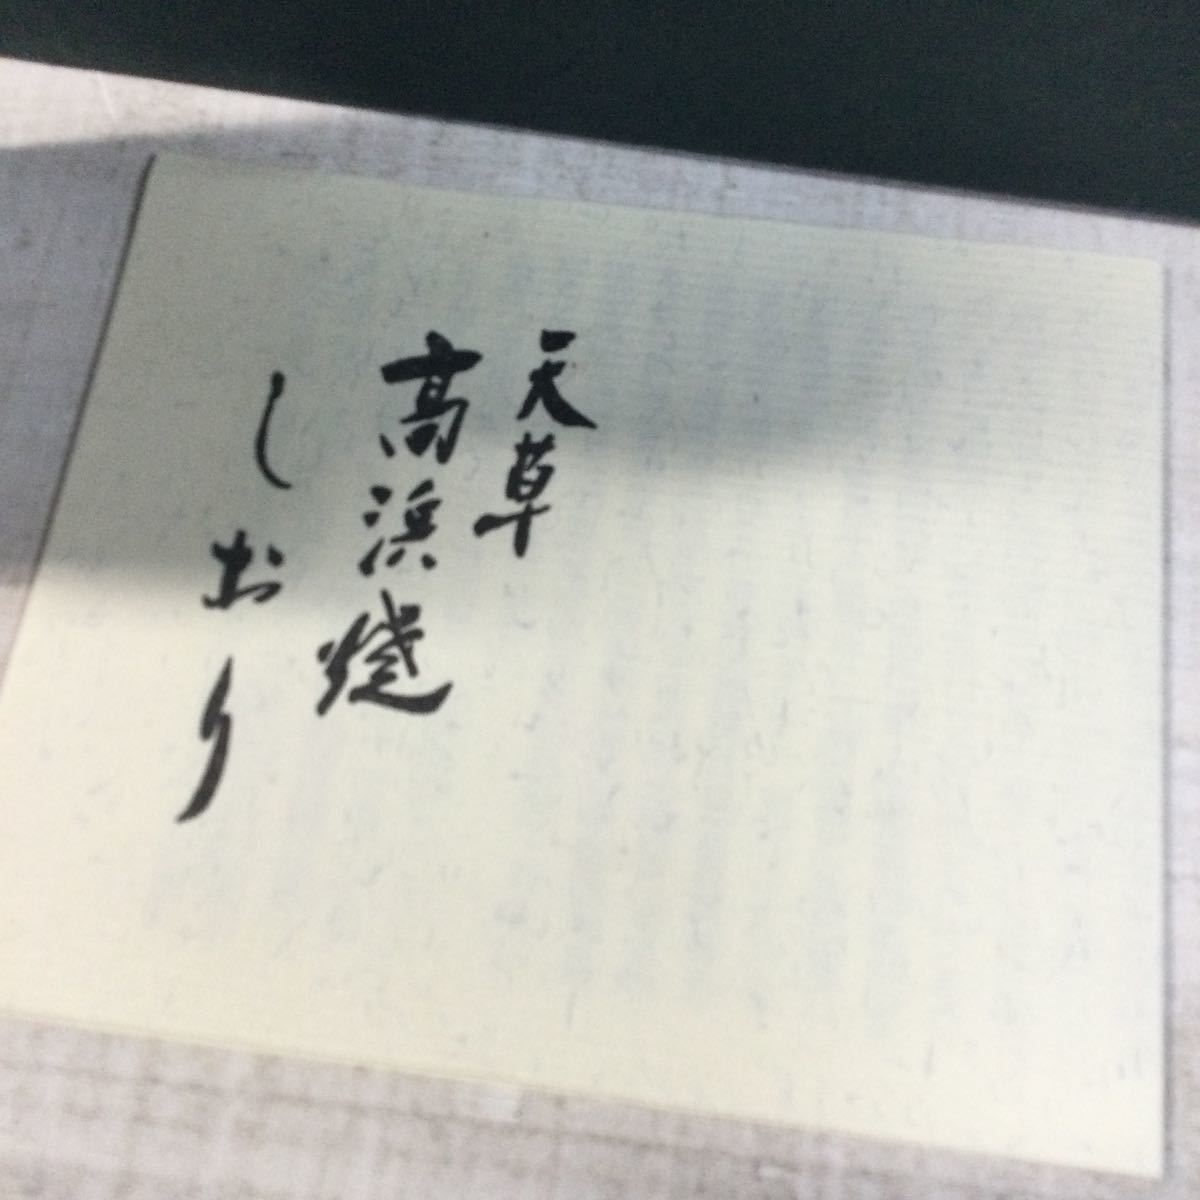 天草
高浜焼
しおり